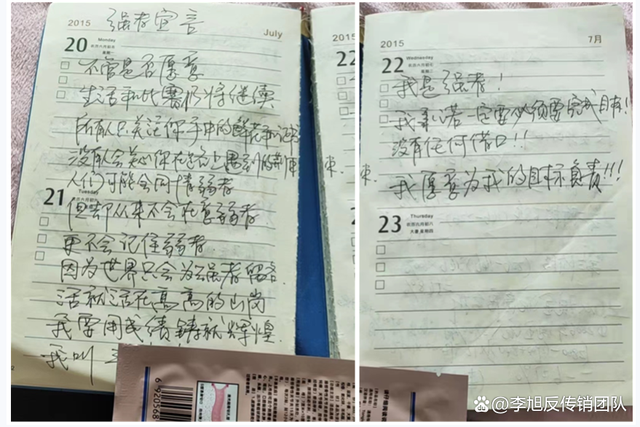 强者宣言
2015
July
20
Monday
不管是否愿意
生活和比赛仍将继续
所有人只关注你手中的鲜花和
没有人会关心你在
人们可能会同情弱者
21
Tuesday
但却从来不会在意弱者
更不会记住弱者
因为世界只会为强者
活就活在高高的山岗
我要用成绩铸就辉煌
我叫
6920568
2015
7月
22
Wednesday
我是强者!
我承诺一定要必须要完成目标!
没有任何借口!!
我愿意为我的目标负责!!!
23
Thursday
大暑 星期四
李旭反传销团队